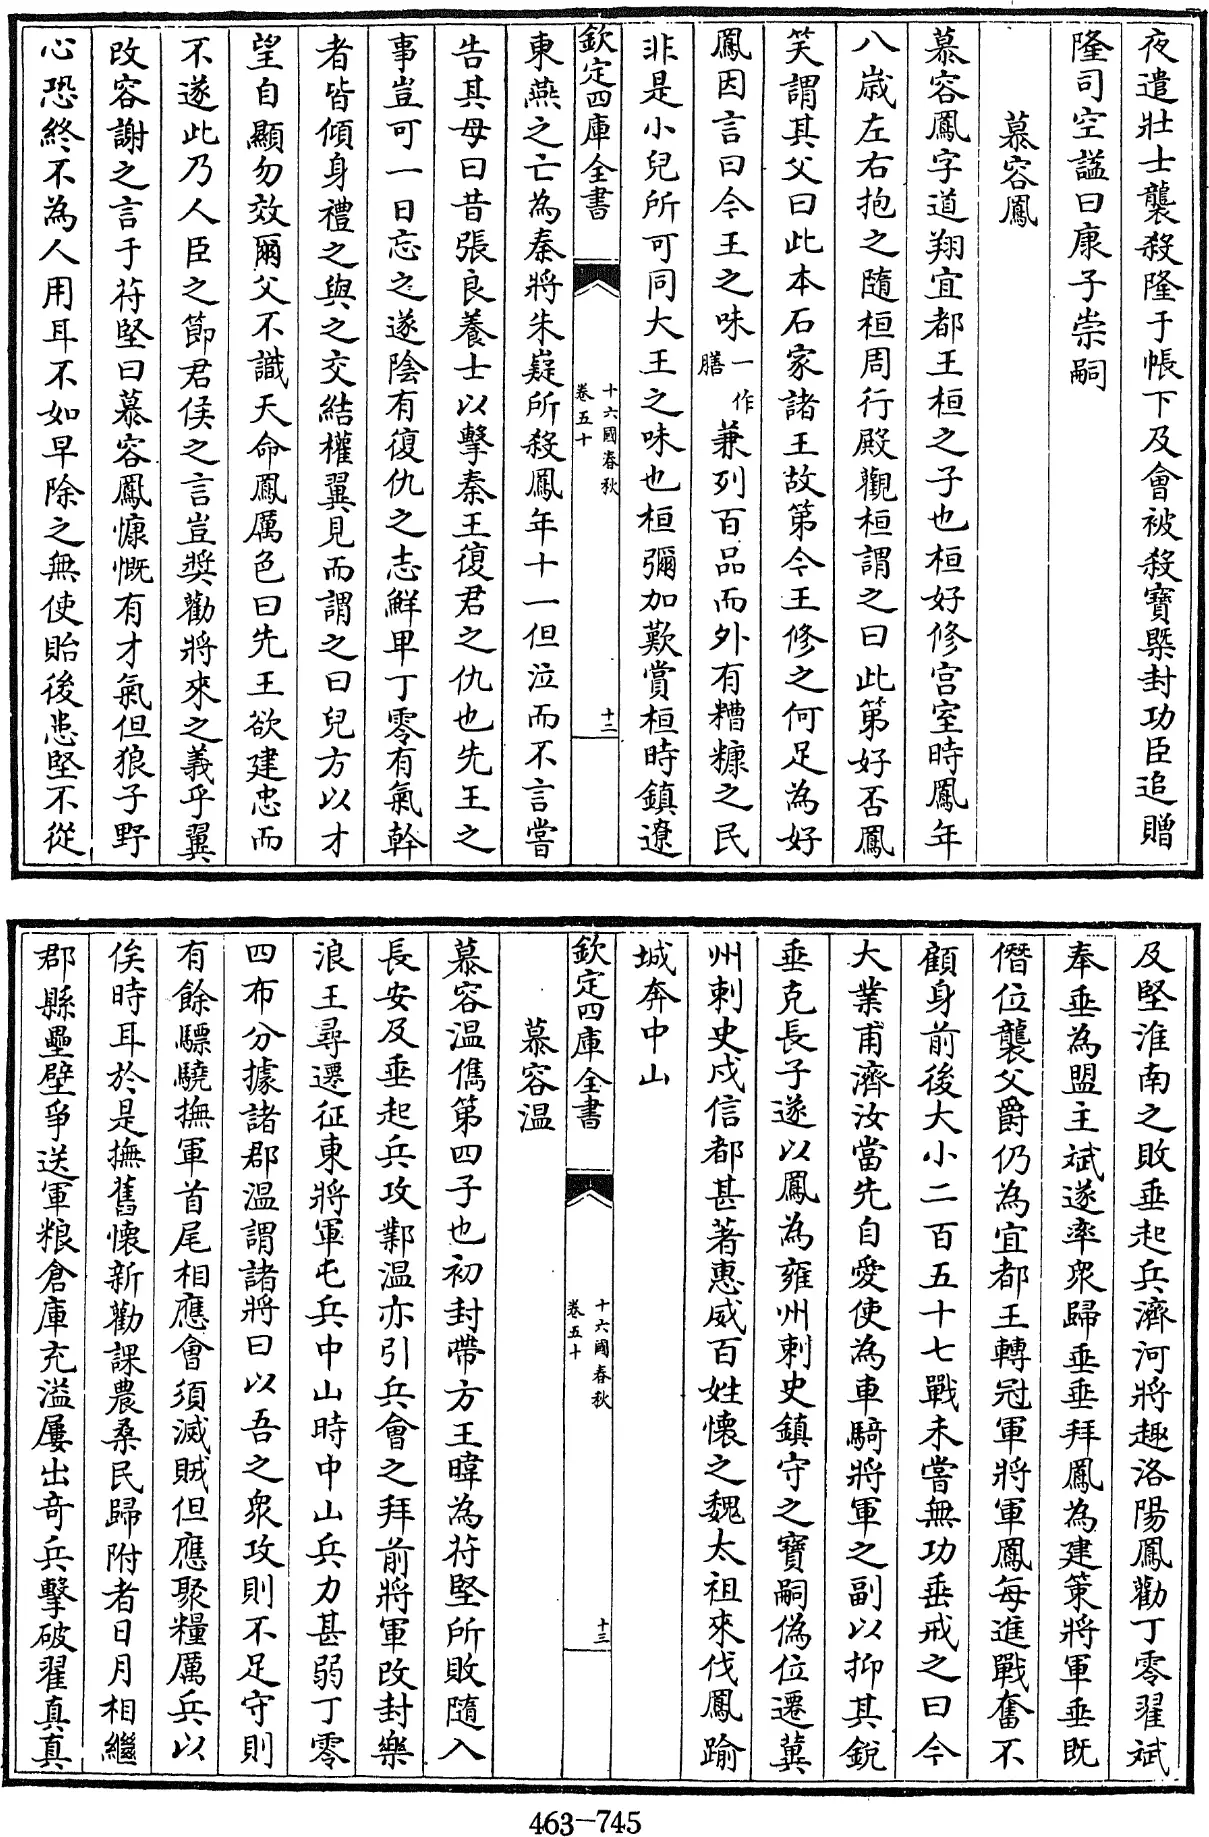 夜遣壯士襲殺隆于帳下及會被殺寶槩封功臣追贈
隆司空諡曰康子崇嗣
慕容鳳
慕容鳳字道翔宜都王桓之子也桓好修宫室時鳳年
八嵗左右抱之隨桓周行殿觀桓謂之曰此第好否鳳
笑謂其父曰此本石家諸王故第今王修之何足為好
鳳因言曰今王之味一作膳兼列百品而外有糟糠之民
非是小兒所可同大王之味也桓彌加歎賞桓時鎮遼
欽定四庫全書
十六國春秋
卷五十
十二
東燕之亡為秦將朱嶷所殺鳳年十一但泣而不言嘗
告其母曰昔張良養士以擊秦王復君之仇也先王之
事豈可一日忘之遂陰有復仇之志鮮卑丁零有氣幹
者皆傾身禮之與之交結權翼見而謂之曰兒方以才
望自顯勿效爾父不識天命鳳厲色曰先王欲建忠而
不遂此乃人臣之節君侯之言豈奬勸將來之義乎翼
改容謝之言于苻堅曰慕容鳳慷慨有才氣但狼子野
心恐終不為人用耳不如早除之無使貽後患堅不從
及堅淮南之敗垂起兵濟河將趣洛陽鳳勸丁零翟斌
奉垂為盟主斌遂率衆歸垂垂拜鳳為建策將軍垂既
僭位襲父爵仍為宜都王轉冠軍將軍鳳每進戰奮不
顧身前後大小二百五十七戰未嘗無功垂戒之曰今
大業甫濟汝當先自愛使為車騎將軍之副以抑其鋭
垂克長子遂以鳳為雍州刺史鎮守之寶嗣偽位遷冀
州刺史戍信都甚著惠威百姓懷之魏太祖來伐鳳踰
城奔中山
欽定四庫全書
十六國春秋
卷五十
十三
慕容温
慕容温儁第四子也初封帶方王暐為苻堅所敗隨入
長安及垂起兵攻鄴温亦引兵會之拜前將軍改封樂
浪王尋遷征東將軍屯兵中山時中山兵力甚弱丁零
四布分據諸郡温謂諸將曰以吾之衆攻則不足守則
有餘驃驍撫軍首尾相應會須滅賊但應聚糧厲兵以
俟時耳於是撫舊懷新勸課農桑民歸附者日月相繼
郡縣壘壁爭送軍粮倉庫充溢屢出奇兵擊破翟真真
463-745